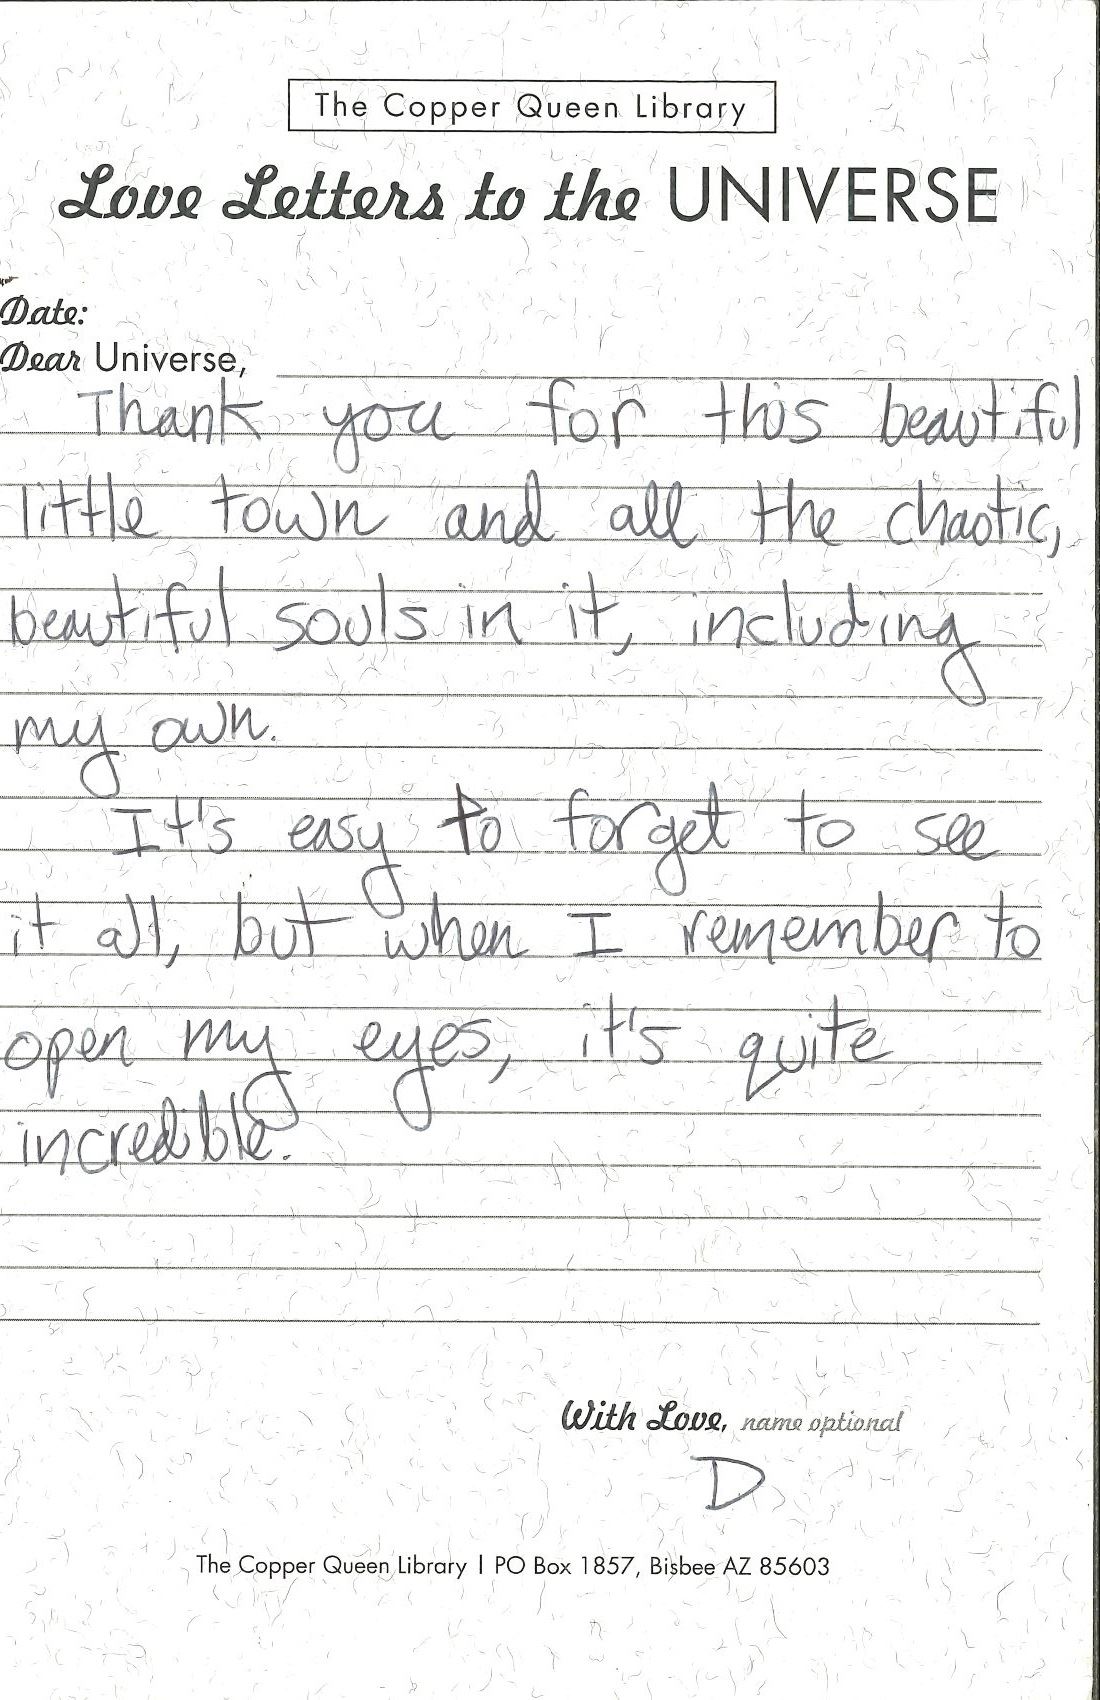 The Copper Queen Library
Love Letters to the UNIVERSE
Date:
Dear Universe,
Thank you for this beautiful
little town and all the chaotic,
beautiful souls in it, including
my own.
It's easy to forget to see
it all, but when I remember to
open my eyes, it's quite
incredible.
With Love, name optional
D
The Copper Queen Library | PO Box 1857, Bisbee AZ 85603